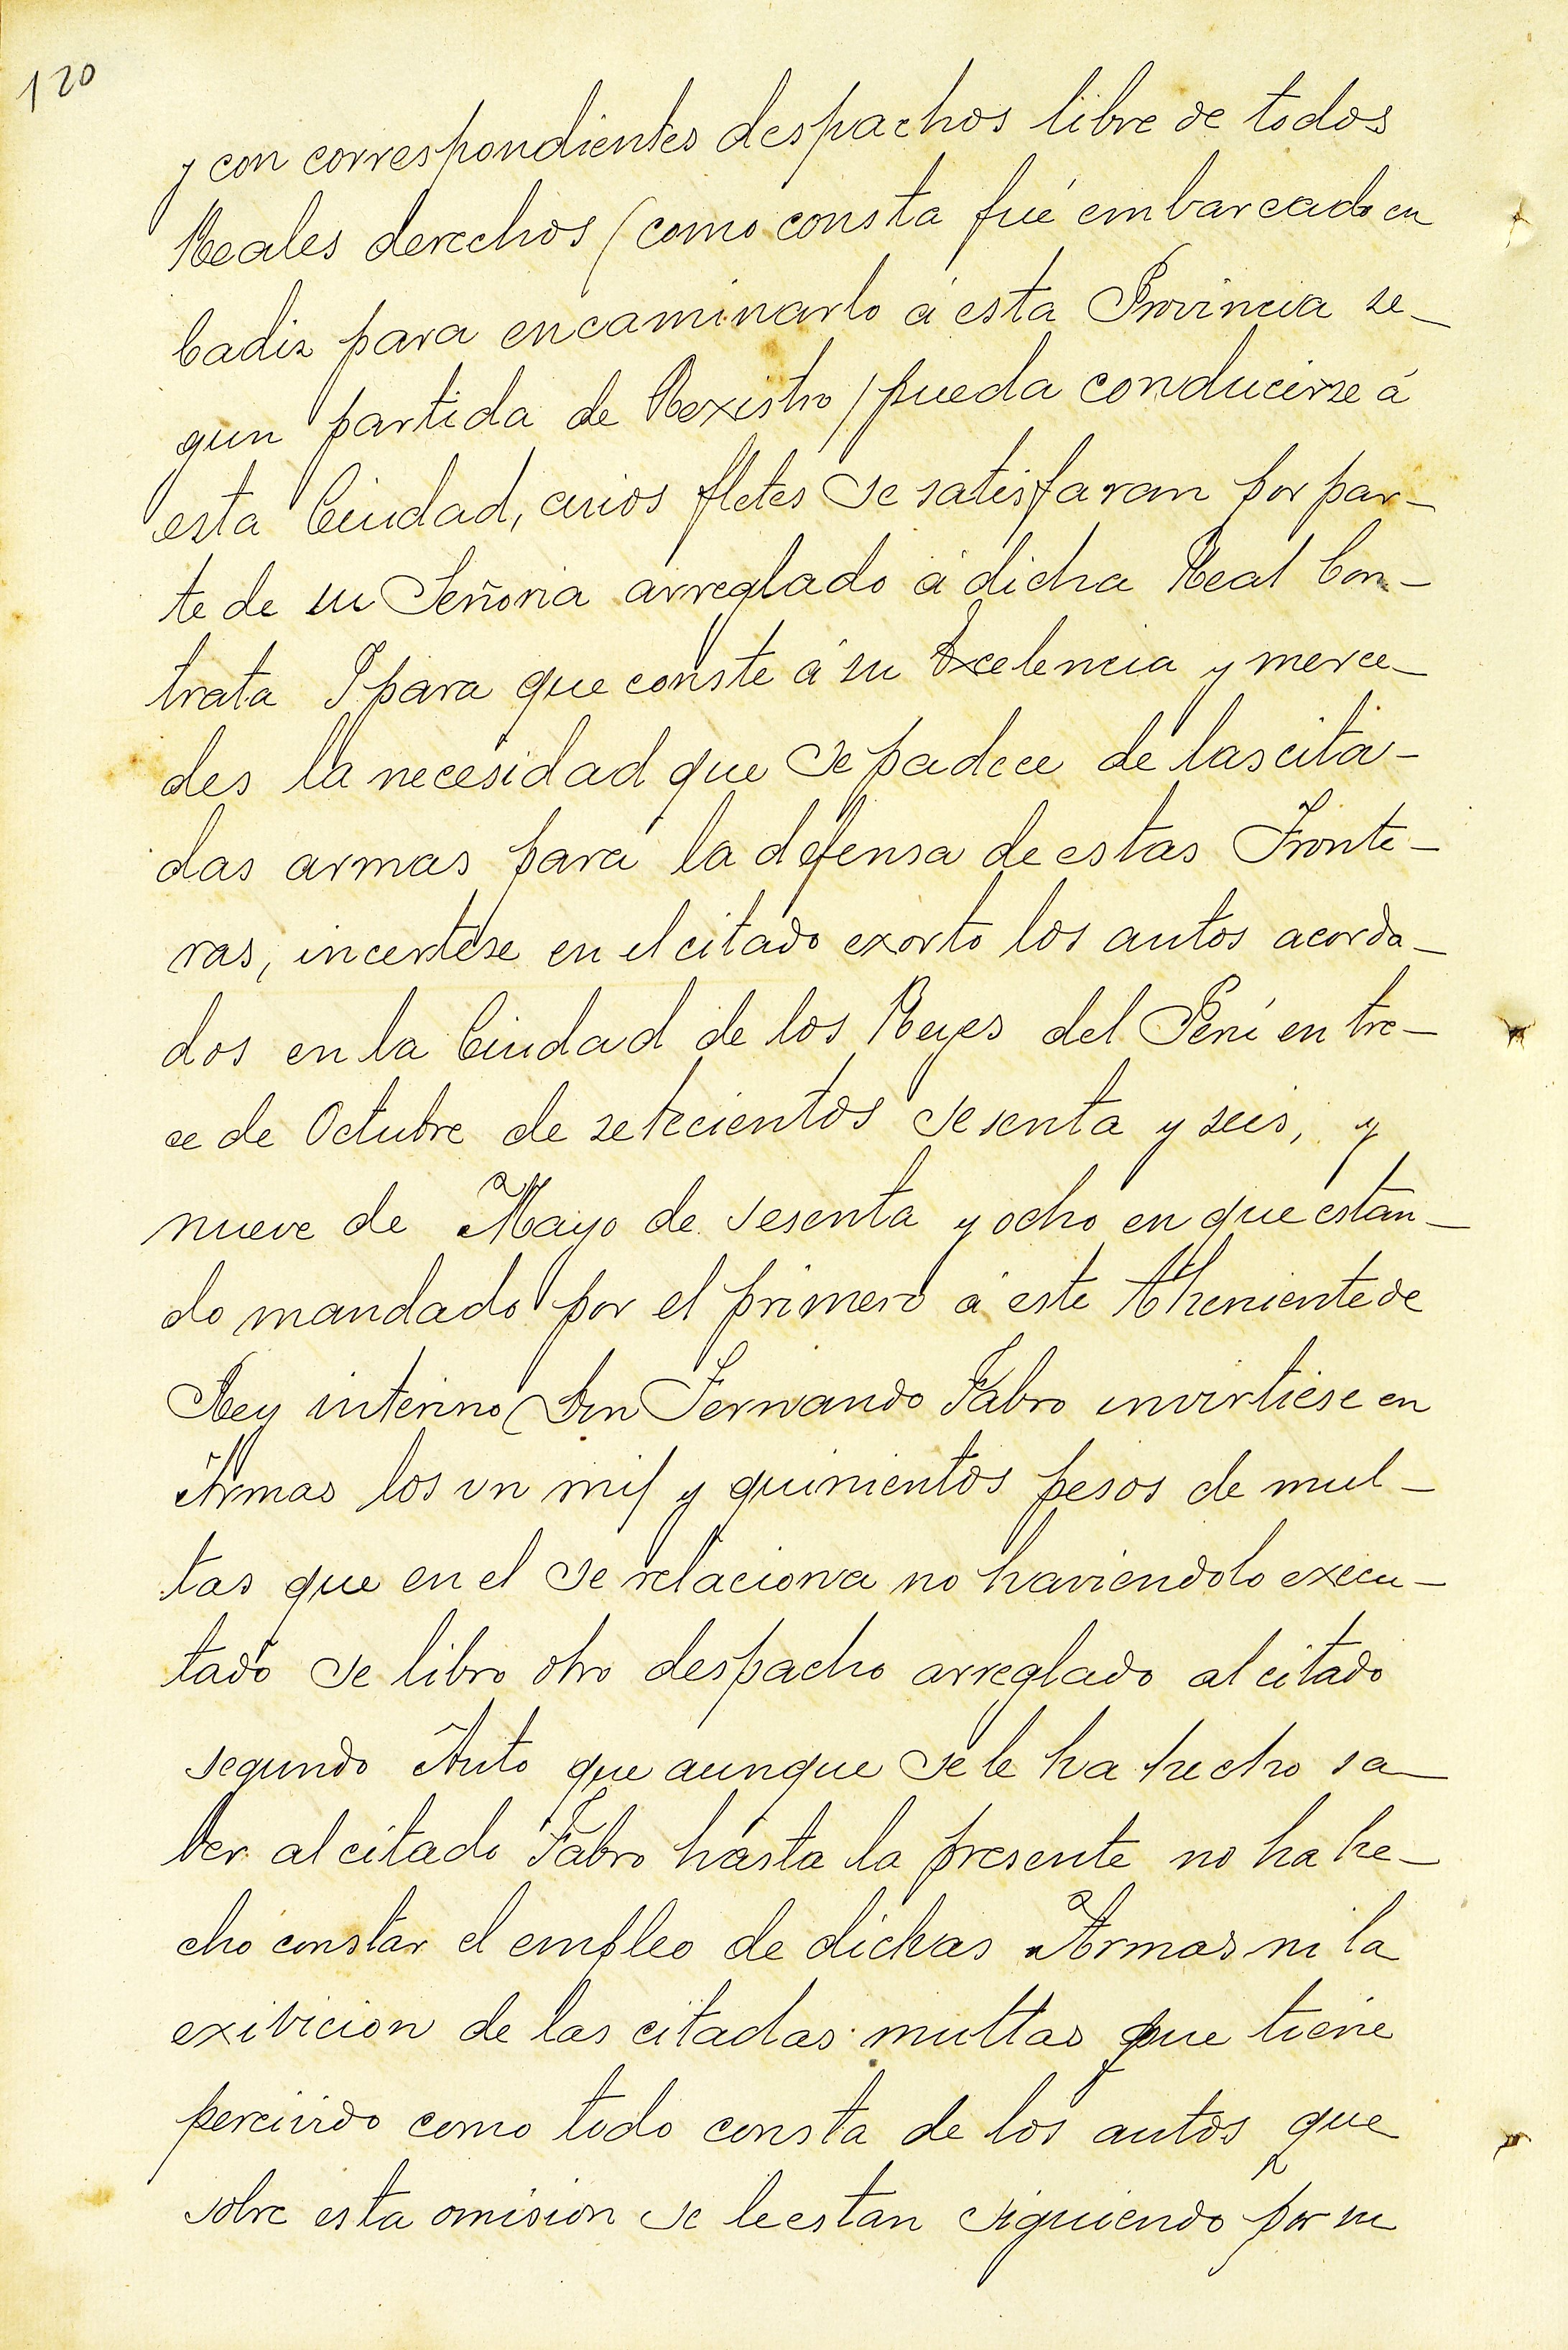 120
y con correspondientes despachos libre de todos
Reales derechos (como consta fué embarcado en
Cadiz para encaminarlo á esta Provincia se-
gun partida de Rexistro) pueda conducirse á
esta Ciudad, cuios fletes se satisfaran por par-
te de su Señoria arreglado á dicha Real Con-
trata Y para que conste á su Excelencia y merce-
des la necesidad que se padece de las cita-
das armas para la defensa de estas Fronte-
ras, incertese en el citado exorto los autos acorda-
dos en la Ciudad de los Reyes del Perú en tre-
ce de Octubre de setecientos sesenta y seis, y
nueve de Mayo de sesenta y ocho en que estan-
do mandado por el primero á este Theniente de
Rey interino Don Fernando Fabro invirtiese en
Armas los un mil y quinientos pesos de mul-
tas que en el se relaciona no haviendolo execu-
tado se libro otro despacho arreglado al citado
segundo Auto que aunque se le ha hecho sa-
ver al citado Fabro hasta la presente no ha he-
cho constar el empleo de dichas Armas ni la
exivicion de las citadas multas que tiene
percivido como todo consta de los autos que
sobre esta omision se le estan siguiendo por su